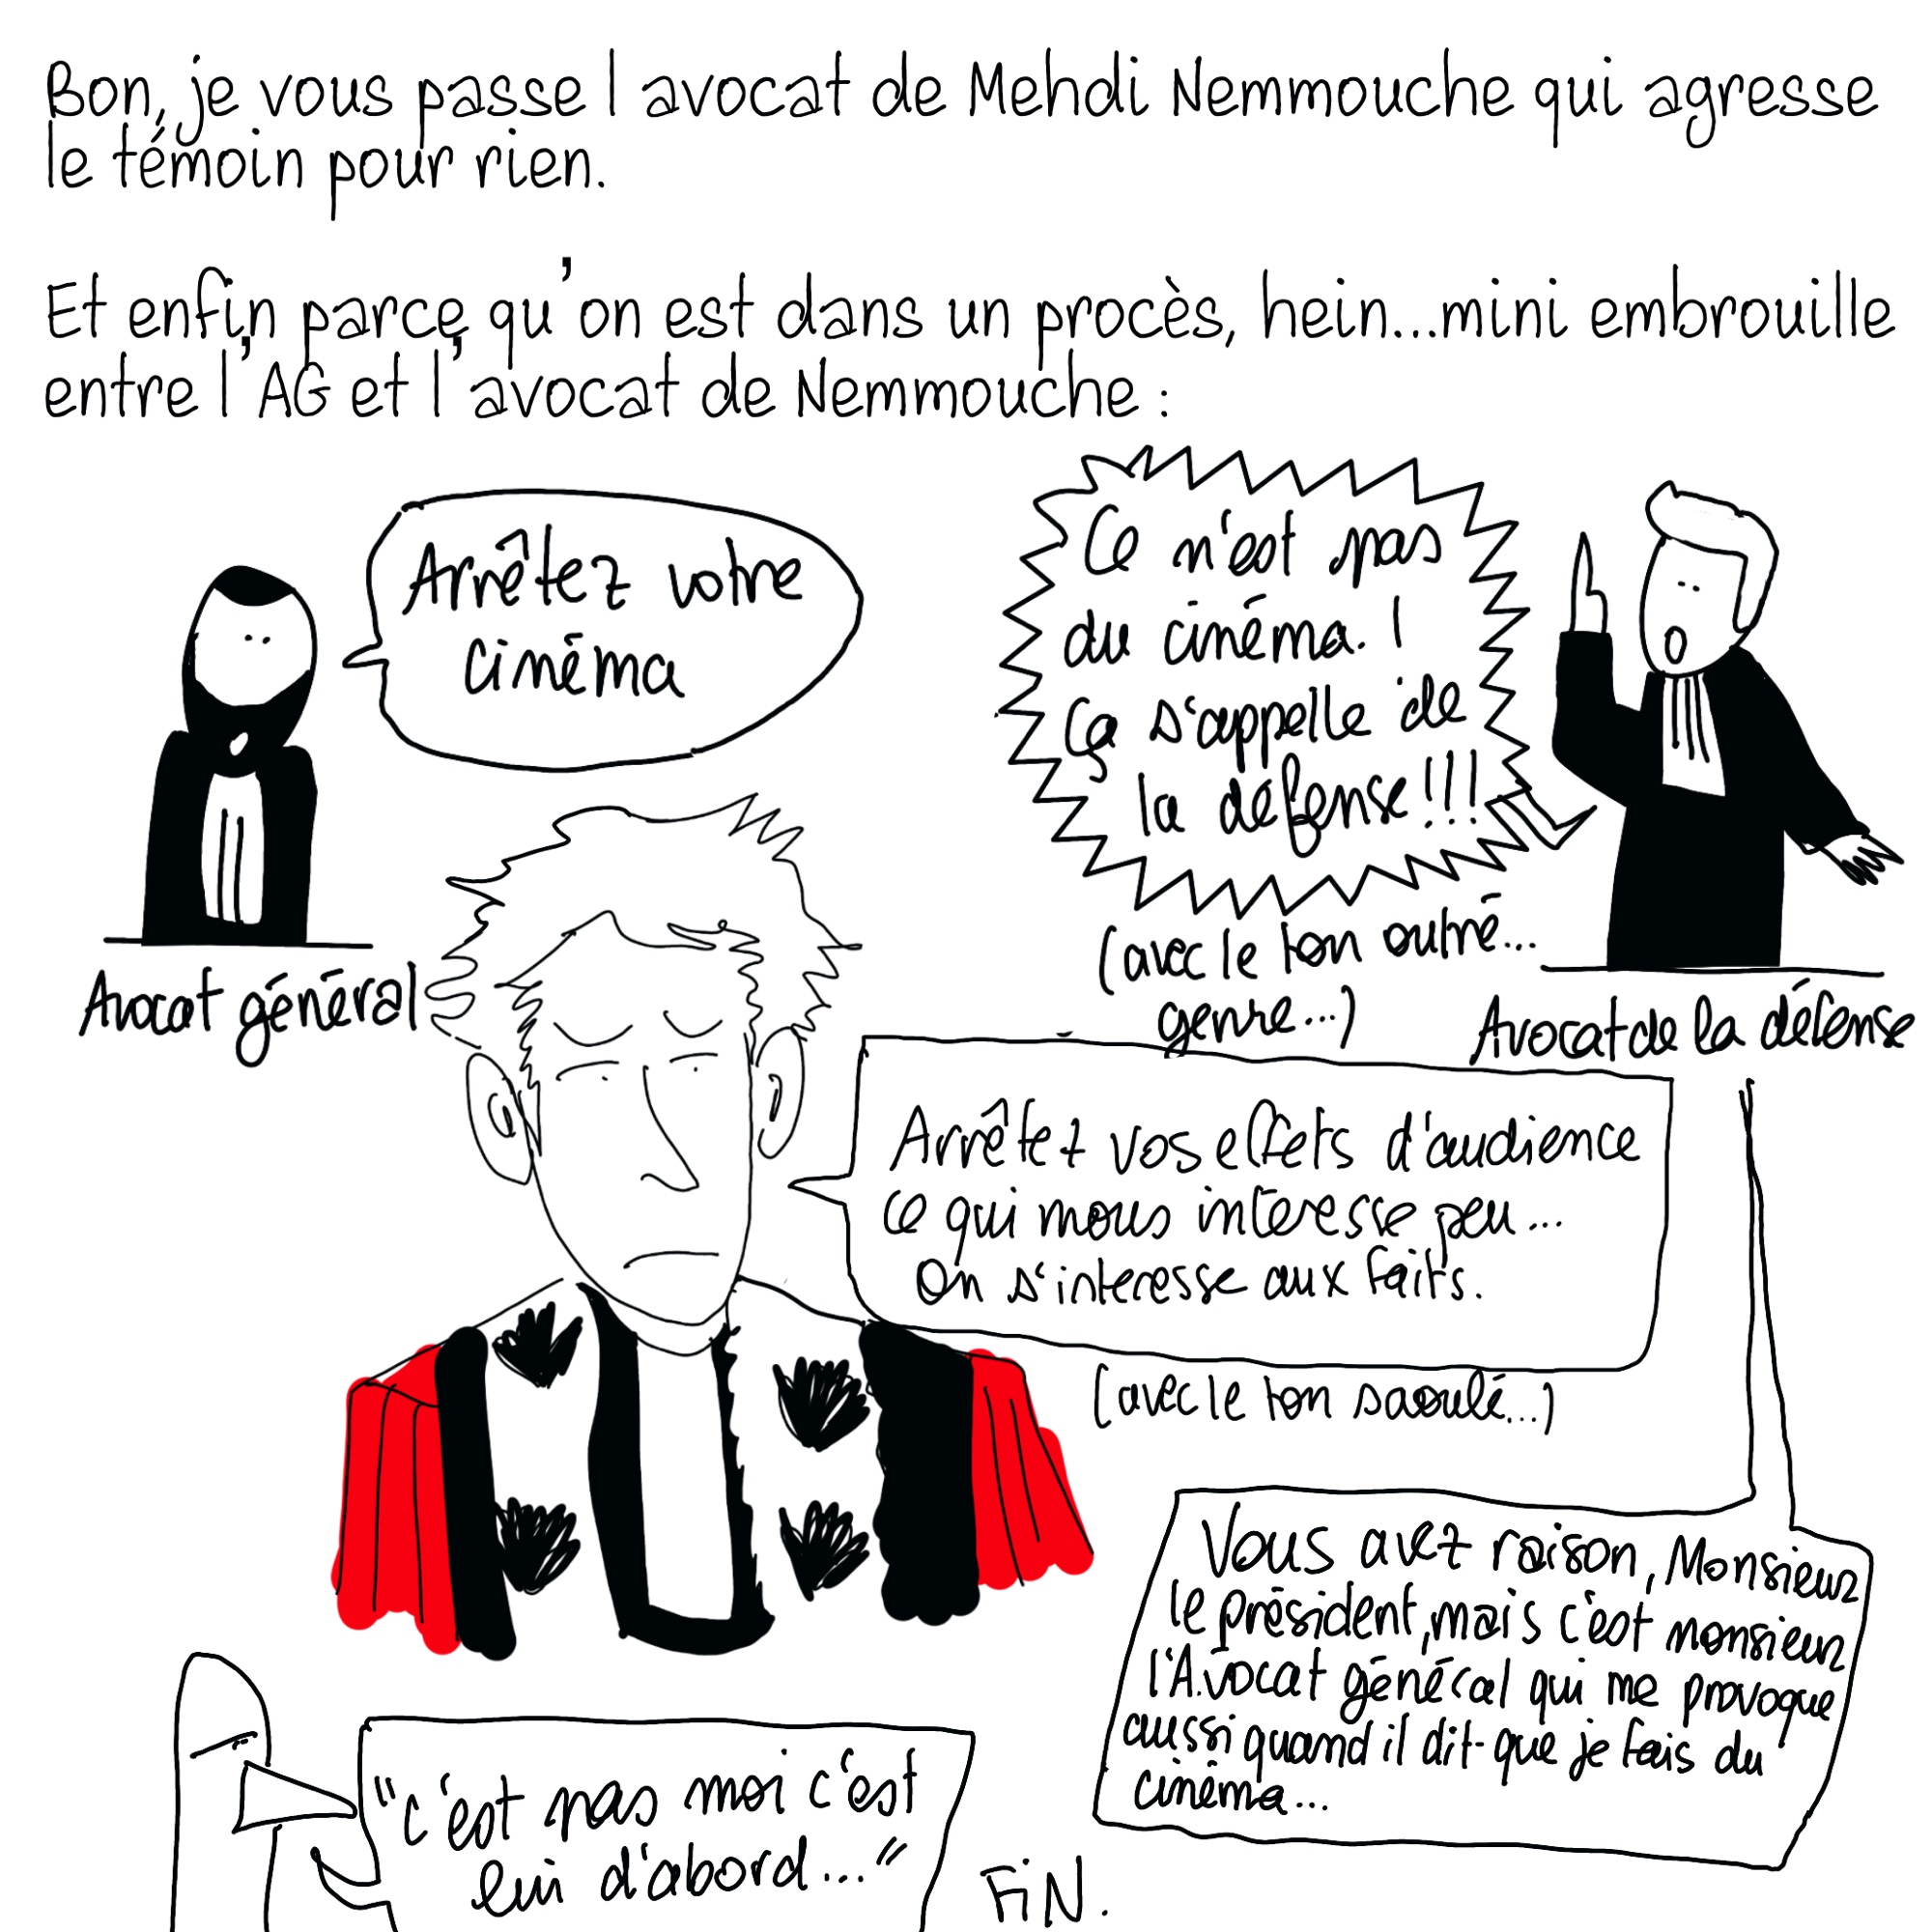 Bon, je vous passe l avocat de Mehdi Nemmouche qui agresse
le témoin pour rien.
Et enfin, parce, qu'on est dans un procès, hein...mini embrouille
entre l'AG et l'avocat de Nemmouche :
Arrêtez votre
cinéma
Avocat général
Ce n'est pas
du cinéma. !
Ça s'appelle de
la défense!!!
(avec le ton outré...
genre...)
Avocat de la défense
Arrêtez vos effets d'audience
ce qui nous interesse peu...
On s'interesse aux faits.
(avec le ton saoulé...)
Vous avez raison, Monsieur
le président, mais c'est monsieur
l'Avocat général qui me provoque
aussi quand il dit que je fais du
cinéma...
"c'est pas moi c'est
lui d'abord..."
FiN.